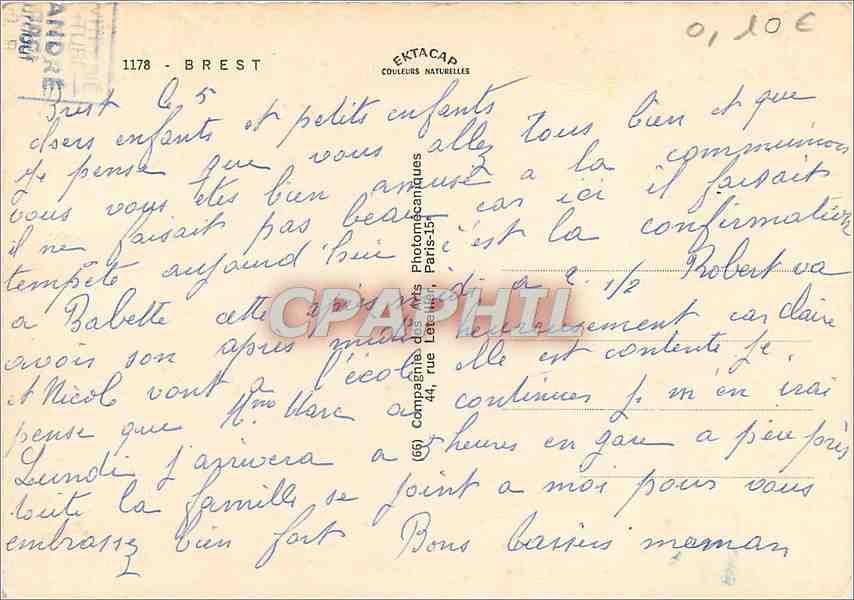 0,10 €
1178 - BREST
EKTACAP
COULEURS NATURELLES
ANDRÉ
Brest le 5
chers enfants et petits enfants
je pense que vous allez tous bien et que
vous vous etes bien amuse a la communion
il ne faisait pas beau car ici il faisait
tempête aujourd'hui c'est la confirmation
a Babette cette après midi a 2. 1/2 Robert va
avoir son après midi heureusement car Claire
et Nicole vont a l'école elle est contente je
pense que Mme Marc a continues je m'en irai
Lundi j'arrivera a 5 heures en gare a peu près
toute la famille se joint a moi pour vous
embrassez bien fort Bons baisers maman
(66) Compagnie des Arts Photomécaniques
44, rue Letellier, Paris-15e
CPAPHIL